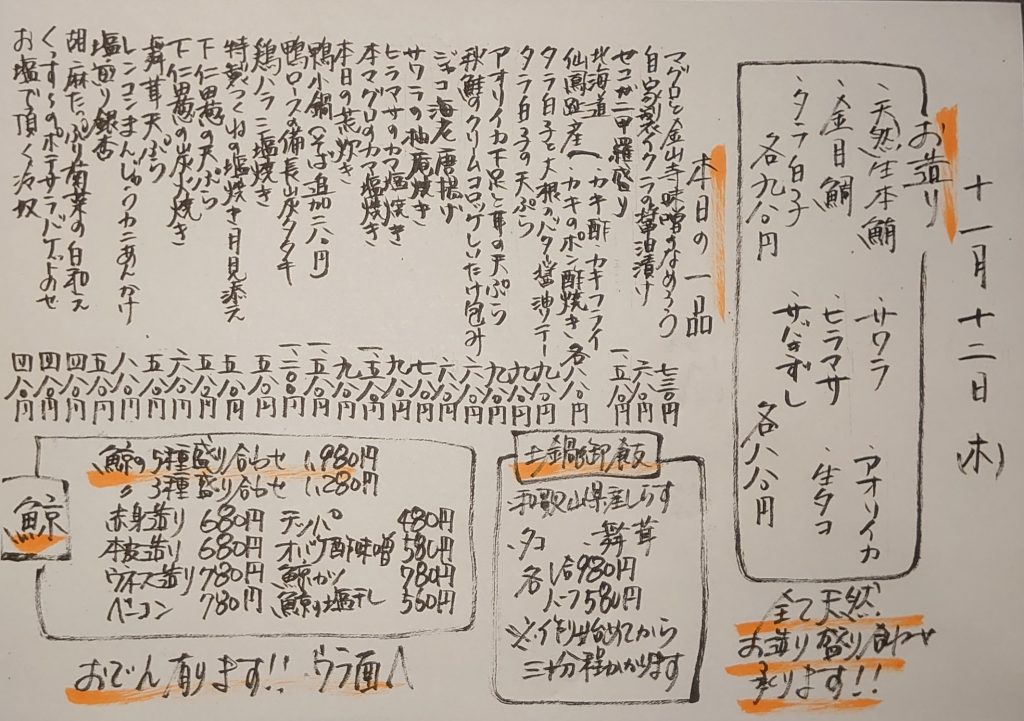 十一月十二日(木)
お造り
、天然生本鮪 、サワラ アオリイカ
、金目鯛 、ヒラマサ 、生タコ
、タラ白子 、サバきずし
各九八〇円 各八八〇円
全て天然
お造り盛り合わせ
承ります!!
本日の一品
マグロと金山寺味噌のなめろう 七三〇円
自家製イクラの醤油漬け 六八〇円
セコガニ甲羅盛り 一、五八〇円
北海道仙鳳趾産(カキ酢 カキフライ
カキのポン酢焼き 各八八〇円
タラ白子と大根のバター醤油ソテー 九八〇円
タラ白子の天ぷら 九八〇円
アオリイカ下足と茸の天ぷら 九八〇円
秋鮭のクリームコロッケしいたけ包み 六八〇円
ジャコ海老唐揚げ 六八〇円
サワラの柚庵焼き 七八〇円
ヒラマサのカマ塩焼き 九八〇円
本マグロのカマ塩焼き 一、五八〇円
本日の荒炊き 九八〇円
鴨小鍋(そば追加二八〇円) 一、五八〇円
鴨ロースの備長炭タタキ 一、二〇〇円
鶏ハラミ塩焼き 五八〇円
特製つくねの塩焼き月見添え 五八〇円
下仁田葱の天ぷら 五八〇円
下仁田葱の炭火焼き 六八〇円
舞茸天ぷら 五八〇円
レンコンまんじゅうカニあんかけ 八八〇円
塩煎り銀杏 五八〇円
胡麻たっぷり菊菜の白和え 四八〇円
ポテサラバゲットのせ 四八〇円
お塩で頂く冷奴 四八〇円
土鍋御飯
、和歌山県産しらす
、タコ 、舞茸
各 1合980円
ハーフ580円
※作り始めてから
三十分程かかります
鯨
鯨の5種盛り合わせ 1,980円
〃 3種盛り合わせ 1,280円
赤身造り 680円 テッパ 480円
本皮造り 680円 オバケ酢味噌 580円
ウネス造り 780円 鯨カツ 780円
ベーコン 780円 鯨の塩干し 560円
おでん有ります!! ウラ面へ